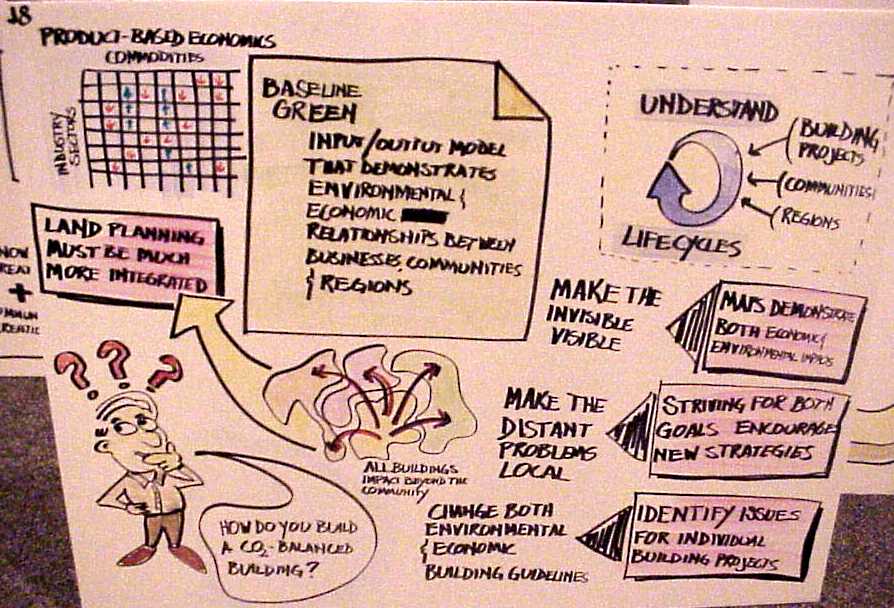 18
PRODUCT-BASED ECONOMICS
COMMODITIES
INDUSTRY
SECTORS
BASELINE
GREEN
INPUT/OUTPUT MODEL
THAT DEMONSTRATES
ENVIRONMENTAL &
ECONOMIC
RELATIONSHIPS BETWEEN
BUSINESSES, COMMUNITIES
& REGIONS
UNDERSTAND
LIFECYCLES
BUILDING
PROJECTS
COMMUNITIES
REGIONS
LAND PLANNING
MUST BE MUCH
MORE INTEGRATED
NOW
+
MAKE THE
INVISIBLE
VISIBLE
MAPS DEMONSTRATE
BOTH ECONOMIC &
ENVIRONMENTAL IMPACTS
MAKE THE
DISTANT
PROBLEMS
LOCAL
STRIVING FOR BOTH
GOALS ENCOURAGE
NEW STRATEGIES
CHANGE BOTH
ENVIRONMENTAL
& ECONOMIC
BUILDING GUIDELINES
IDENTIFY ISSUES
FOR INDIVIDUAL
BUILDING PROJECTS
ALL BUILDINGS
IMPACT BEYOND THE
COMMUNITY
???
HOW DO YOU BUILD
A CO2-BALANCED
BUILDING?